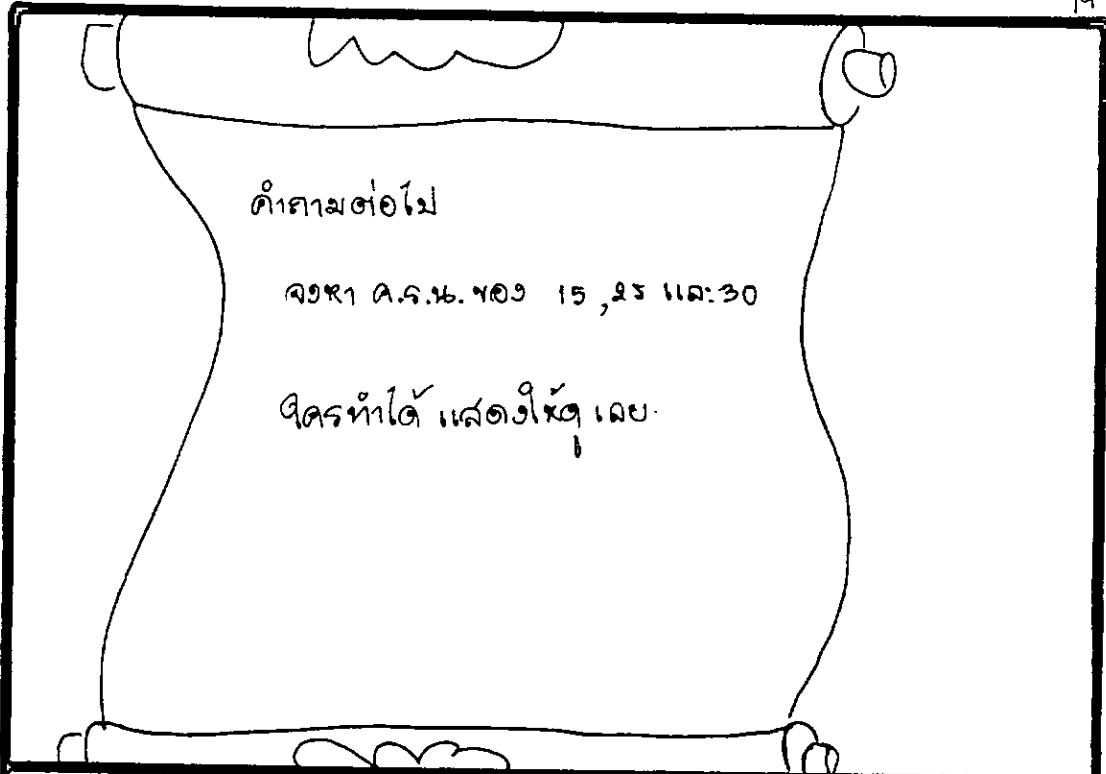 คำถามต่อไป
จงหา ค.ร.น. ของ 15 , 25 และ 30
ใครทำได้ แสดงให้ดู เลย